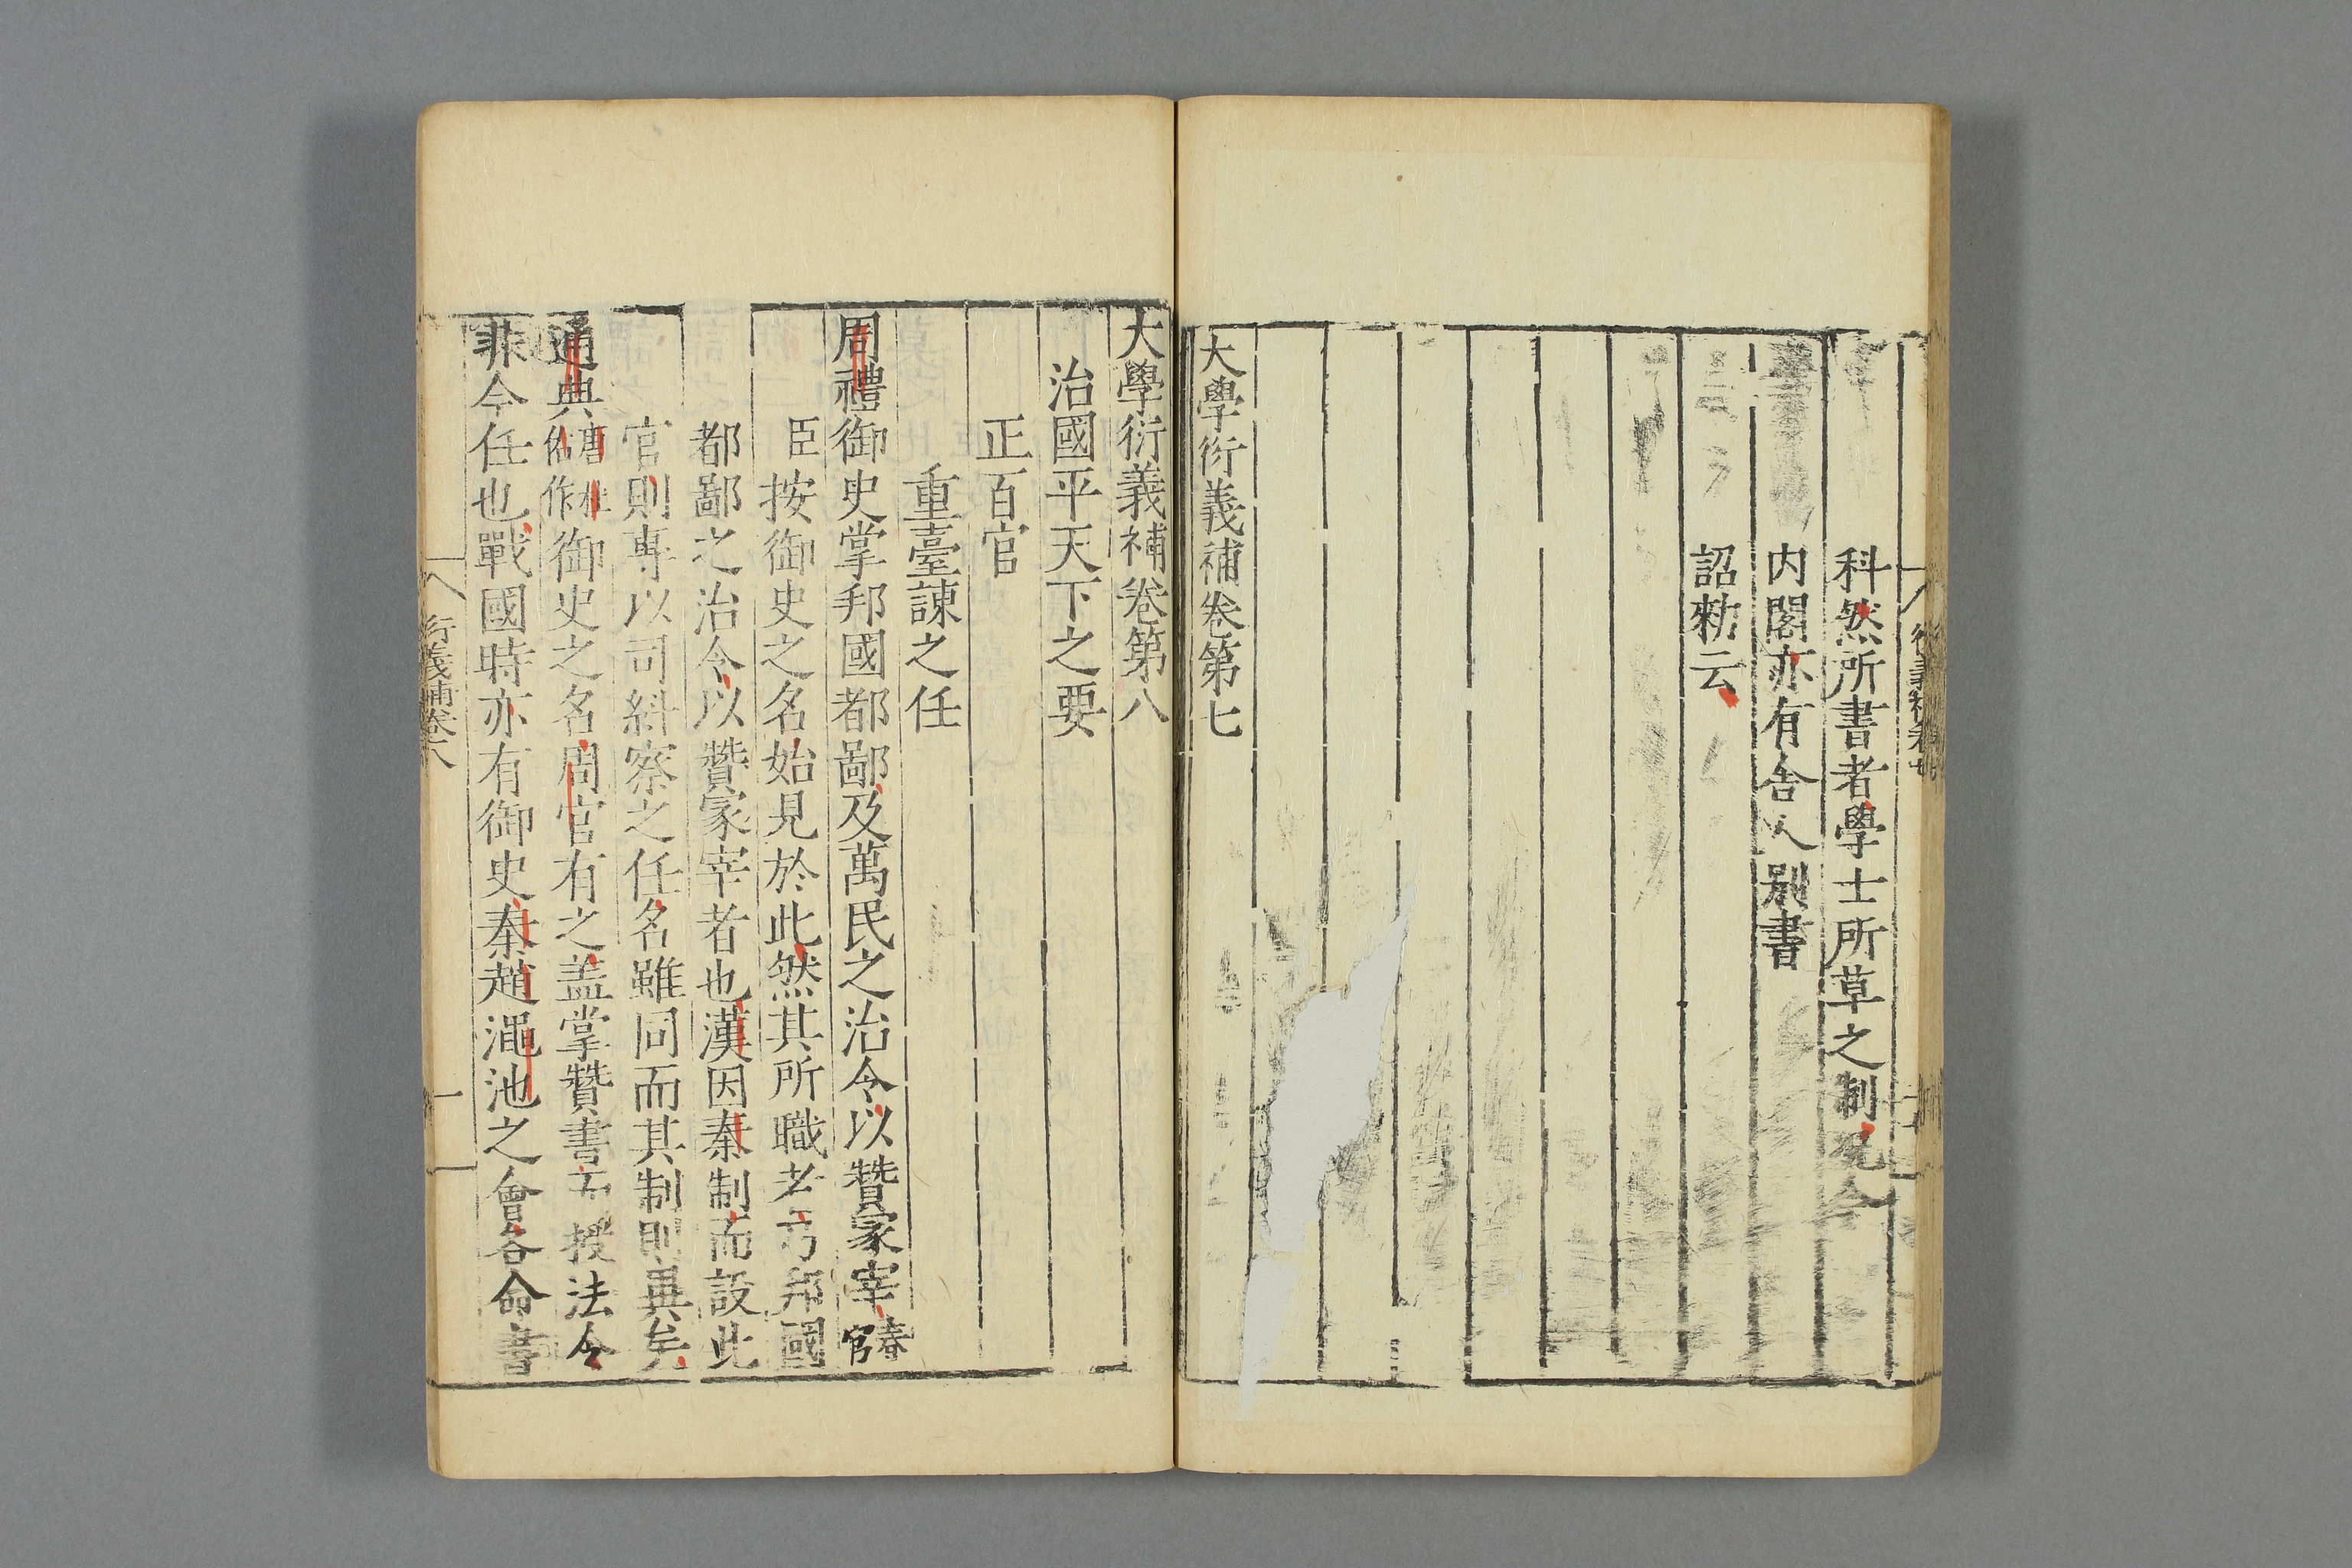 科然所書者學士所草之制
内閣亦有舍人别書
詔勑云
大學衍義補卷第七
大學衍義補卷第八
治國平天下之要
正百官
重臺諫之任
周禮御史掌邦國都鄙及萬民之治令以贊冢宰春官
臣按御史之名始見於此然其所職者乃邦國
都鄙之治令以贊冢宰者也漢因秦制而設此
官則專以司糾察之任名雖同而其制則異矣
通典唐杜佑作御史之名周官有之盖掌贊書而授法令
非今任也戰國時亦有御史秦趙澠池之會各命書
衍義補卷八
一